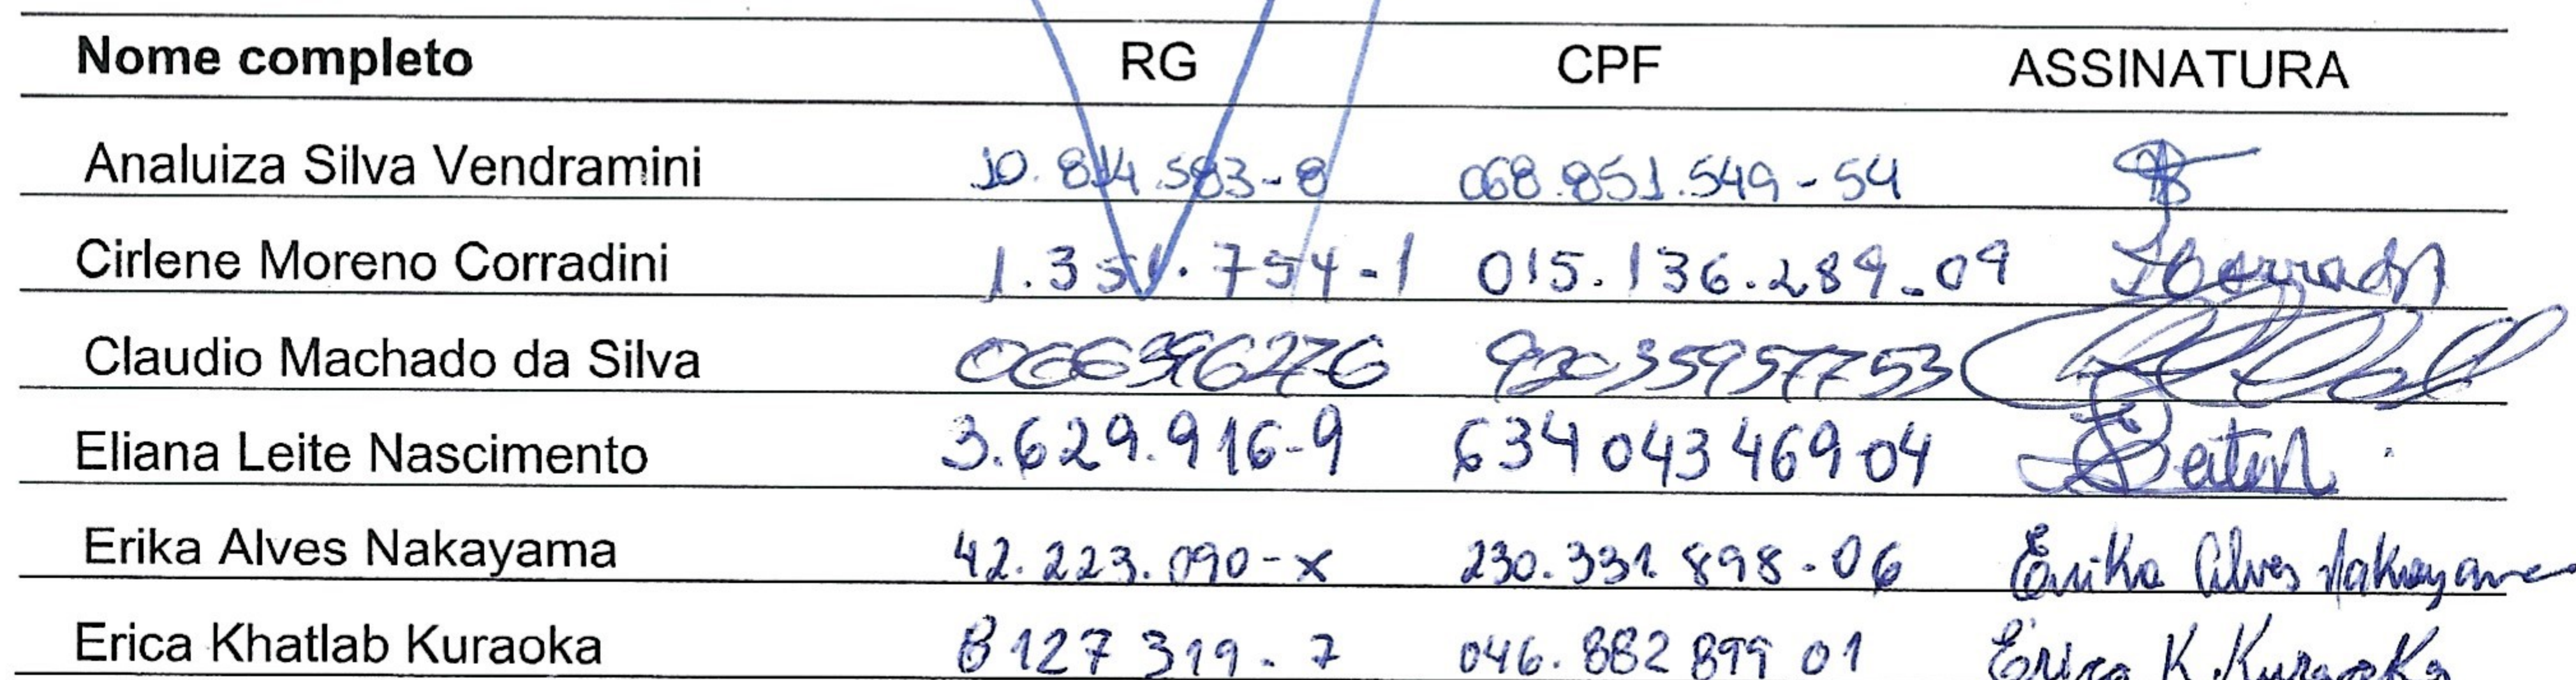 Nome completo RG CPF ASSINATURA
Analuiza Silva Vendramini 10.814.583-8 068.851.549-54
Cirlene Moreno Corradini 1.351.754-1 015.136.289-09
Claudio Machado da Silva
Eliana Leite Nascimento 3.629.916-9 634 043 469 04
Erika Alves Nakayama 42.223.090-x 230.331.898-06 Erika Alves Nakayama
Erica Khatlab Kuraoka 8127 319-7 046.882 899 01 Erica K. Kuraoka